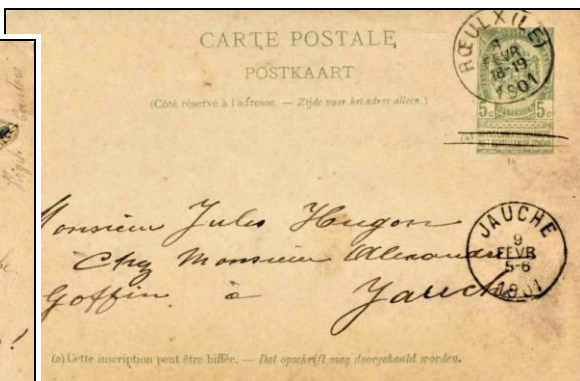 CARTE POSTALE
POSTKAART
(Côté réservé à l'adresse. — Zijde voor het adres alleen.)
RŒULX (LE)
FEVR
18-19
1901
5c 5c
Monsieur Jules Hugon
Chez Monsieur Alexandre
Goffin à Jauche
JAUCHE
9
FEVR
5-6
1901
(o) Cette inscription peut être biffée. — Dat opschrift mag doorgehaald worden.